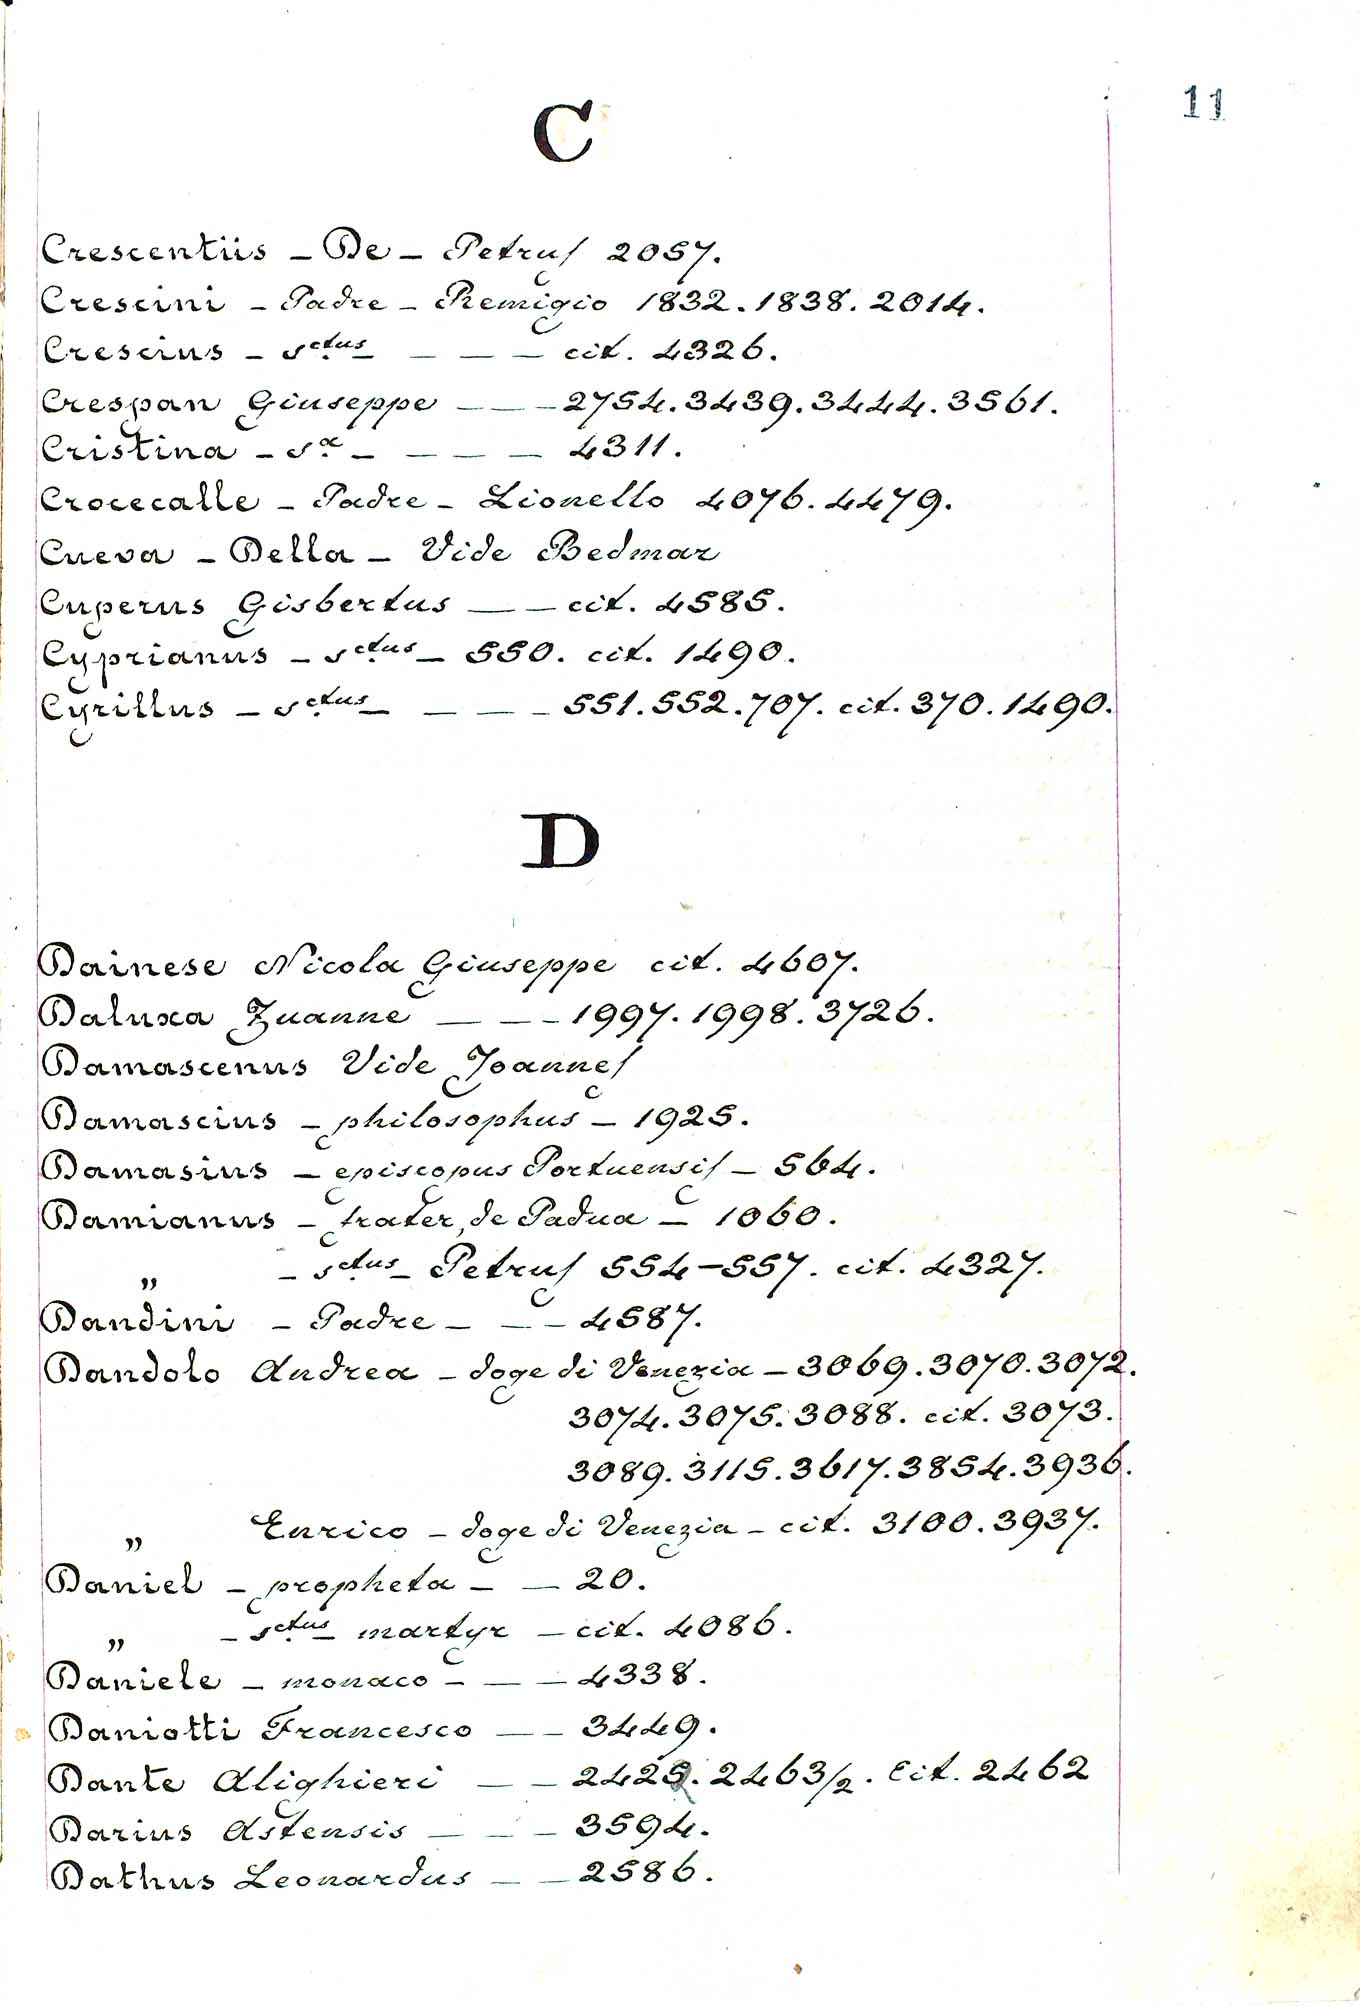 11
C
Crescentiis – De – Petrus 2057.
Crescini – Padre – Remigio 1832. 1838. 2014.
Crescius – sctus – – – – cit. 4326.
Crespan Giuseppe – – – 2754. 3439. 3444. 3561.
Cristina – sa – – – – 4311.
Crocecalle – Padre – Lionello 4076. 4479.
Cueva – Della – Vide Bedmar
Cuperus Gisbertus – – cit. 4585.
Cyprianus – sctus – 550. cit. 1490.
Cyrillus – sctus – – – – 551. 552. 707. cit. 370. 1490.
D
Dainese Nicola Giuseppe cit. 4607.
Daluxa Zuanne – – – 1997. 1998. 3726.
Damascenus Vide Joannes
Damascius – philosophus – 1925.
Damasius – episcopus Portuensis – 564.
Damianus – frater, de Padua – 1060.
„ – sctus – Petrus 554–557. cit. 4327.
Dandini – Padre – – – 4587.
Dandolo Andrea – doge di Venezia – 3069. 3070. 3072.
3074. 3075. 3088. cit. 3073.
3089. 3115. 3617. 3854. 3936.
„ Enrico – doge di Venezia – cit. 3100. 3937.
Daniel – propheta – – 20.
„ – sctus – martyr – cit. 4086.
Daniele – monaco – – – 4338.
Daniotti Francesco – – 3449.
Dante Alighieri – – 2422. 2463/2. Cit. 2462
Darius Astensis – – – 3594.
Dathus Leonardus – – 2586.